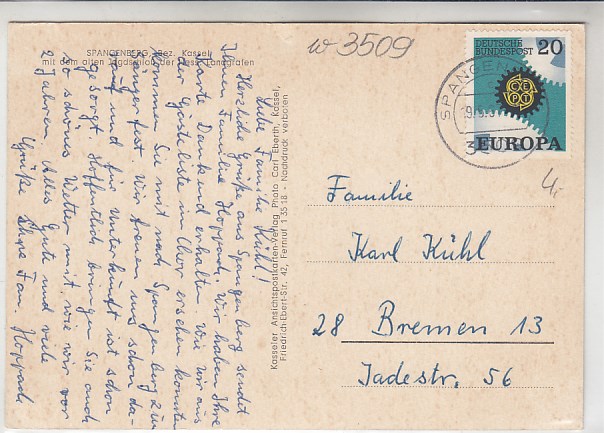 SPANGENBERG, Bez. Kassel
mit dem alten Jagdschloß der hess. Landgrafen
w 3509
DEUTSCHE
BUNDESPOST
20
CEPT
EUROPA
SPANGEN
Liebe Familie Kühl!
Herzliche Grüße aus Spangenberg sendet
Ihnen Familie Hoppach. Wir haben Ihre
Karte Dankend erhalten. Wie wir aus
der Gästeliste in Chor ersehen konnten
kommen Sie mit nach Spangenberg zum
Sängerfest. Wir freuen uns schon da-
rauf und für Unterkunft ist schon
gesorgt. Hoffentlich bringen Sie auch
so schönes Wetter mit, wie wir vor
2 Jahren. Alles Gute und viele
Grüße Ihre Fam. Hoppach
Kasseler Ansichtspostkarten-Verlag Photo Carl Eberth, Kassel,
Friedrich-Ebert-Str. 42, Fernruf 1 35 18 - Nachdruck verboten
Familie
Karl Kühl
28 Bremen 13
Jadestr. 56
4,-